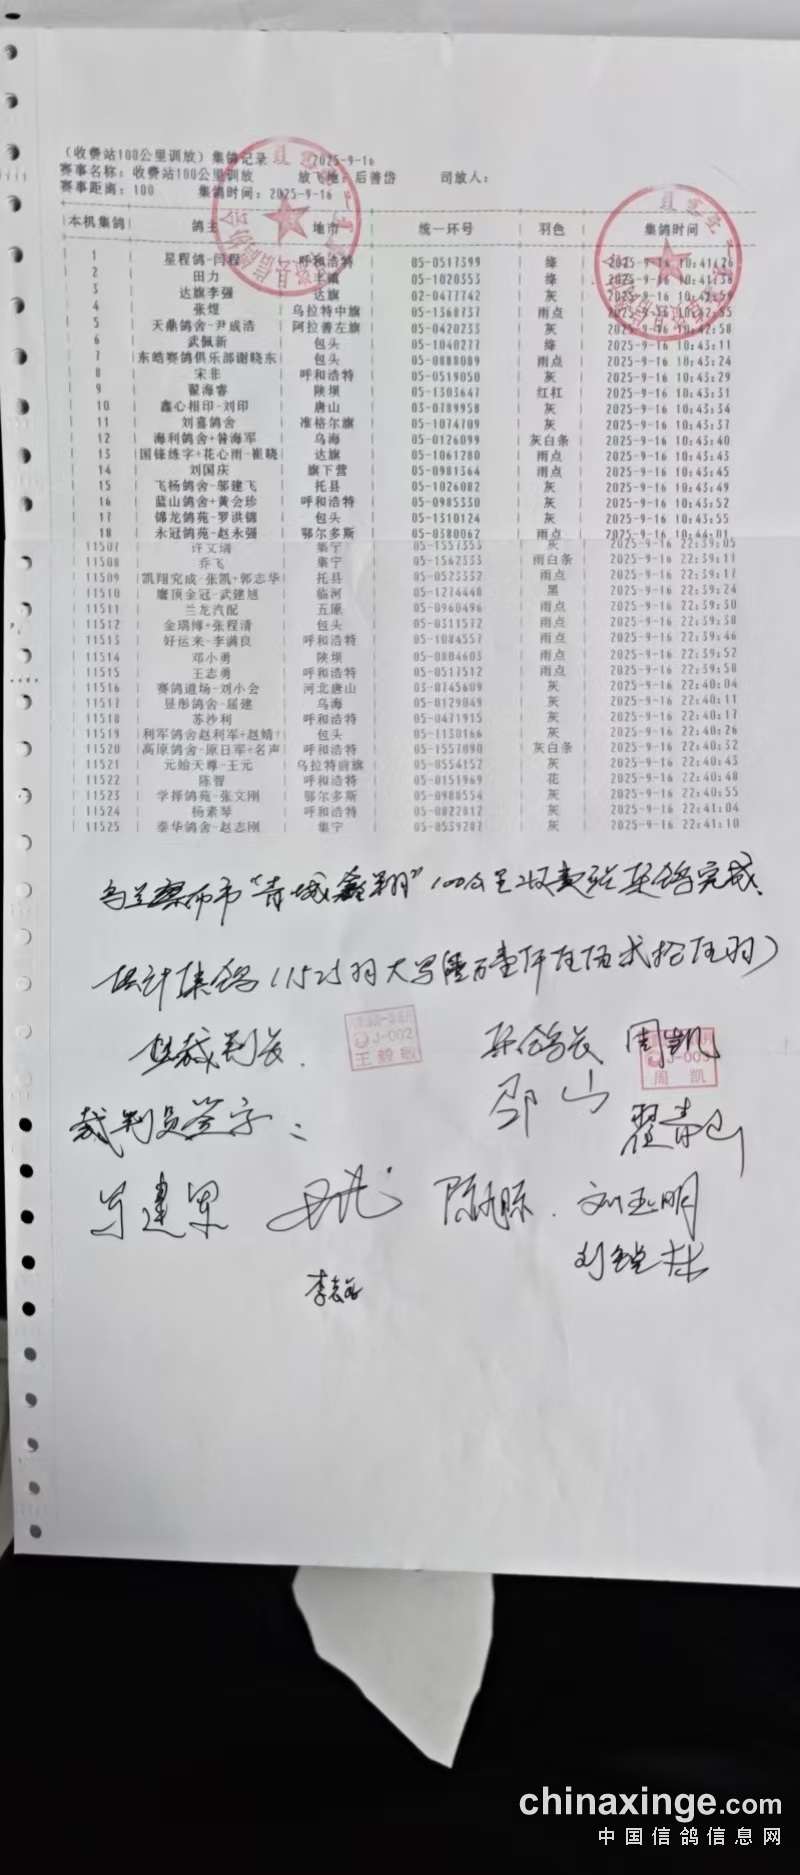 (收费站100公里训放) 集鸽记录 2025-9-16
赛事名称: 收费站100公里训放 放飞地: 后善岱 司放人:
赛事距离: 100 集鸽时间: 2025-9-16
本机集鸽 鸽主 地市 统一环号 羽色 集鸽时间
1 星程鸽-闫程 呼和浩特 05-0517399 绛 2025-9-16 10:41:26
2 田力 丰镇 05-1020353 绛 2025-9-16 10:41:36
3 达旗李强 达旗 02-0477742 灰 2025-9-16 10:42:59
4 张煜 乌拉特中旗 05-1368737 雨点 2025-9-16 10:42:55
5 天鼎鸽舍-尹成浩 阿拉善左旗 05-0420233 灰 2025-9-16 10:42:58
6 武佩新 包头 05-1040277 绛 2025-9-16 10:43:11
7 东皓赛鸽俱乐部谢晓东 包头 05-0888089 雨点 2025-9-16 10:43:24
8 宋非 呼和浩特 05-0519050 灰 2025-9-16 10:43:29
9 翟海睿 陕坝 05-1303647 红杠 2025-9-16 10:43:31
10 鑫心相印-刘印 唐山 03-0789958 灰 2025-9-16 10:43:34
11 刘喜鸽舍 准格尔旗 05-1074709 灰 2025-9-16 10:43:37
12 海利鸽舍+昝海军 乌海 05-0126099 灰白条 2025-9-16 10:43:40
13 国锋练字+花心雨-崔晓 达旗 05-1061280 雨点 2025-9-16 10:43:43
14 刘国庆 旗下营 05-0981364 雨点 2025-9-16 10:43:45
15 飞杨鸽舍-邬建飞 托县 05-1026082 灰 2025-9-16 10:43:49
16 蓝山鸽舍+黄会珍 呼和浩特 05-0985330 灰 2025-9-16 10:43:52
17 锦龙鸽苑-罗洪锦 包头 05-1310124 灰 2025-9-16 10:43:55
18 永冠鸽苑-赵永强 鄂尔多斯 05-0380062 雨点 2025-9-16 10:44:01
11507 许文瑞 集宁 05-1557353 灰 2025-9-16 22:39:05
11508 乔飞 集宁 05-1562333 雨白条 2025-9-16 22:39:11
11509 凯翔究成-张凯+郭志华 托县 05-0523332 雨点 2025-9-16 22:39:17
11510 鹰顶金冠-武建旭 临河 05-1274448 黑 2025-9-16 22:39:24
11511 兰龙汽配 五原 05-0960496 雨点 2025-9-16 22:39:30
11512 金瑞博+张程清 包头 05-0311572 雨点 2025-9-16 22:39:38
11513 好运来-李满良 呼和浩特 05-1084557 雨点 2025-9-16 22:39:46
11514 邓小勇 陕坝 05-0804603 雨点 2025-9-16 22:39:52
11515 王志勇 呼和浩特 05-0517512 雨点 2025-9-16 22:39:58
11516 赛鸽道场-刘小会 河北唐山 03-0745609 灰 2025-9-16 22:40:04
11517 昱彤鸽舍-屈建 乌海 05-0129849 灰 2025-9-16 22:40:11
11518 苏沙利 呼和浩特 05-0471915 灰 2025-9-16 22:40:17
11519 利军鸽舍赵利军+赵婧 包头 05-1130166 灰 2025-9-16 22:40:26
11520 高原鸽舍-原日军+名声 呼和浩特 05-1557090 灰白条 2025-9-16 22:40:32
11521 元始天尊-王元 乌拉特前旗 05-0554152 灰 2025-9-16 22:40:43
11522 陈智 呼和浩特 05-0151969 花 2025-9-16 22:40:48
11523 学择鸽苑-张文刚 鄂尔多斯 05-0988554 灰 2025-9-16 22:40:55
11524 杨素琴 呼和浩特 05-0822812 灰 2025-9-16 22:41:04
11525 泰华鸽舍-赵志刚 集宁 05-0539287 灰 2025-9-16 22:41:10
乌兰察布市"青城鑫翔"100公里收费站集鸽完成、
共计集鸽(11525羽大写 万壹仟 伍 贰拾伍羽)
总裁判长、 J-002 王毅敏 集鸽长 周凯 J-003 周凯
邵山
裁判员签字: 翟青山
刘玉明
李志
chinaxinge.com
中国信鸽信息网